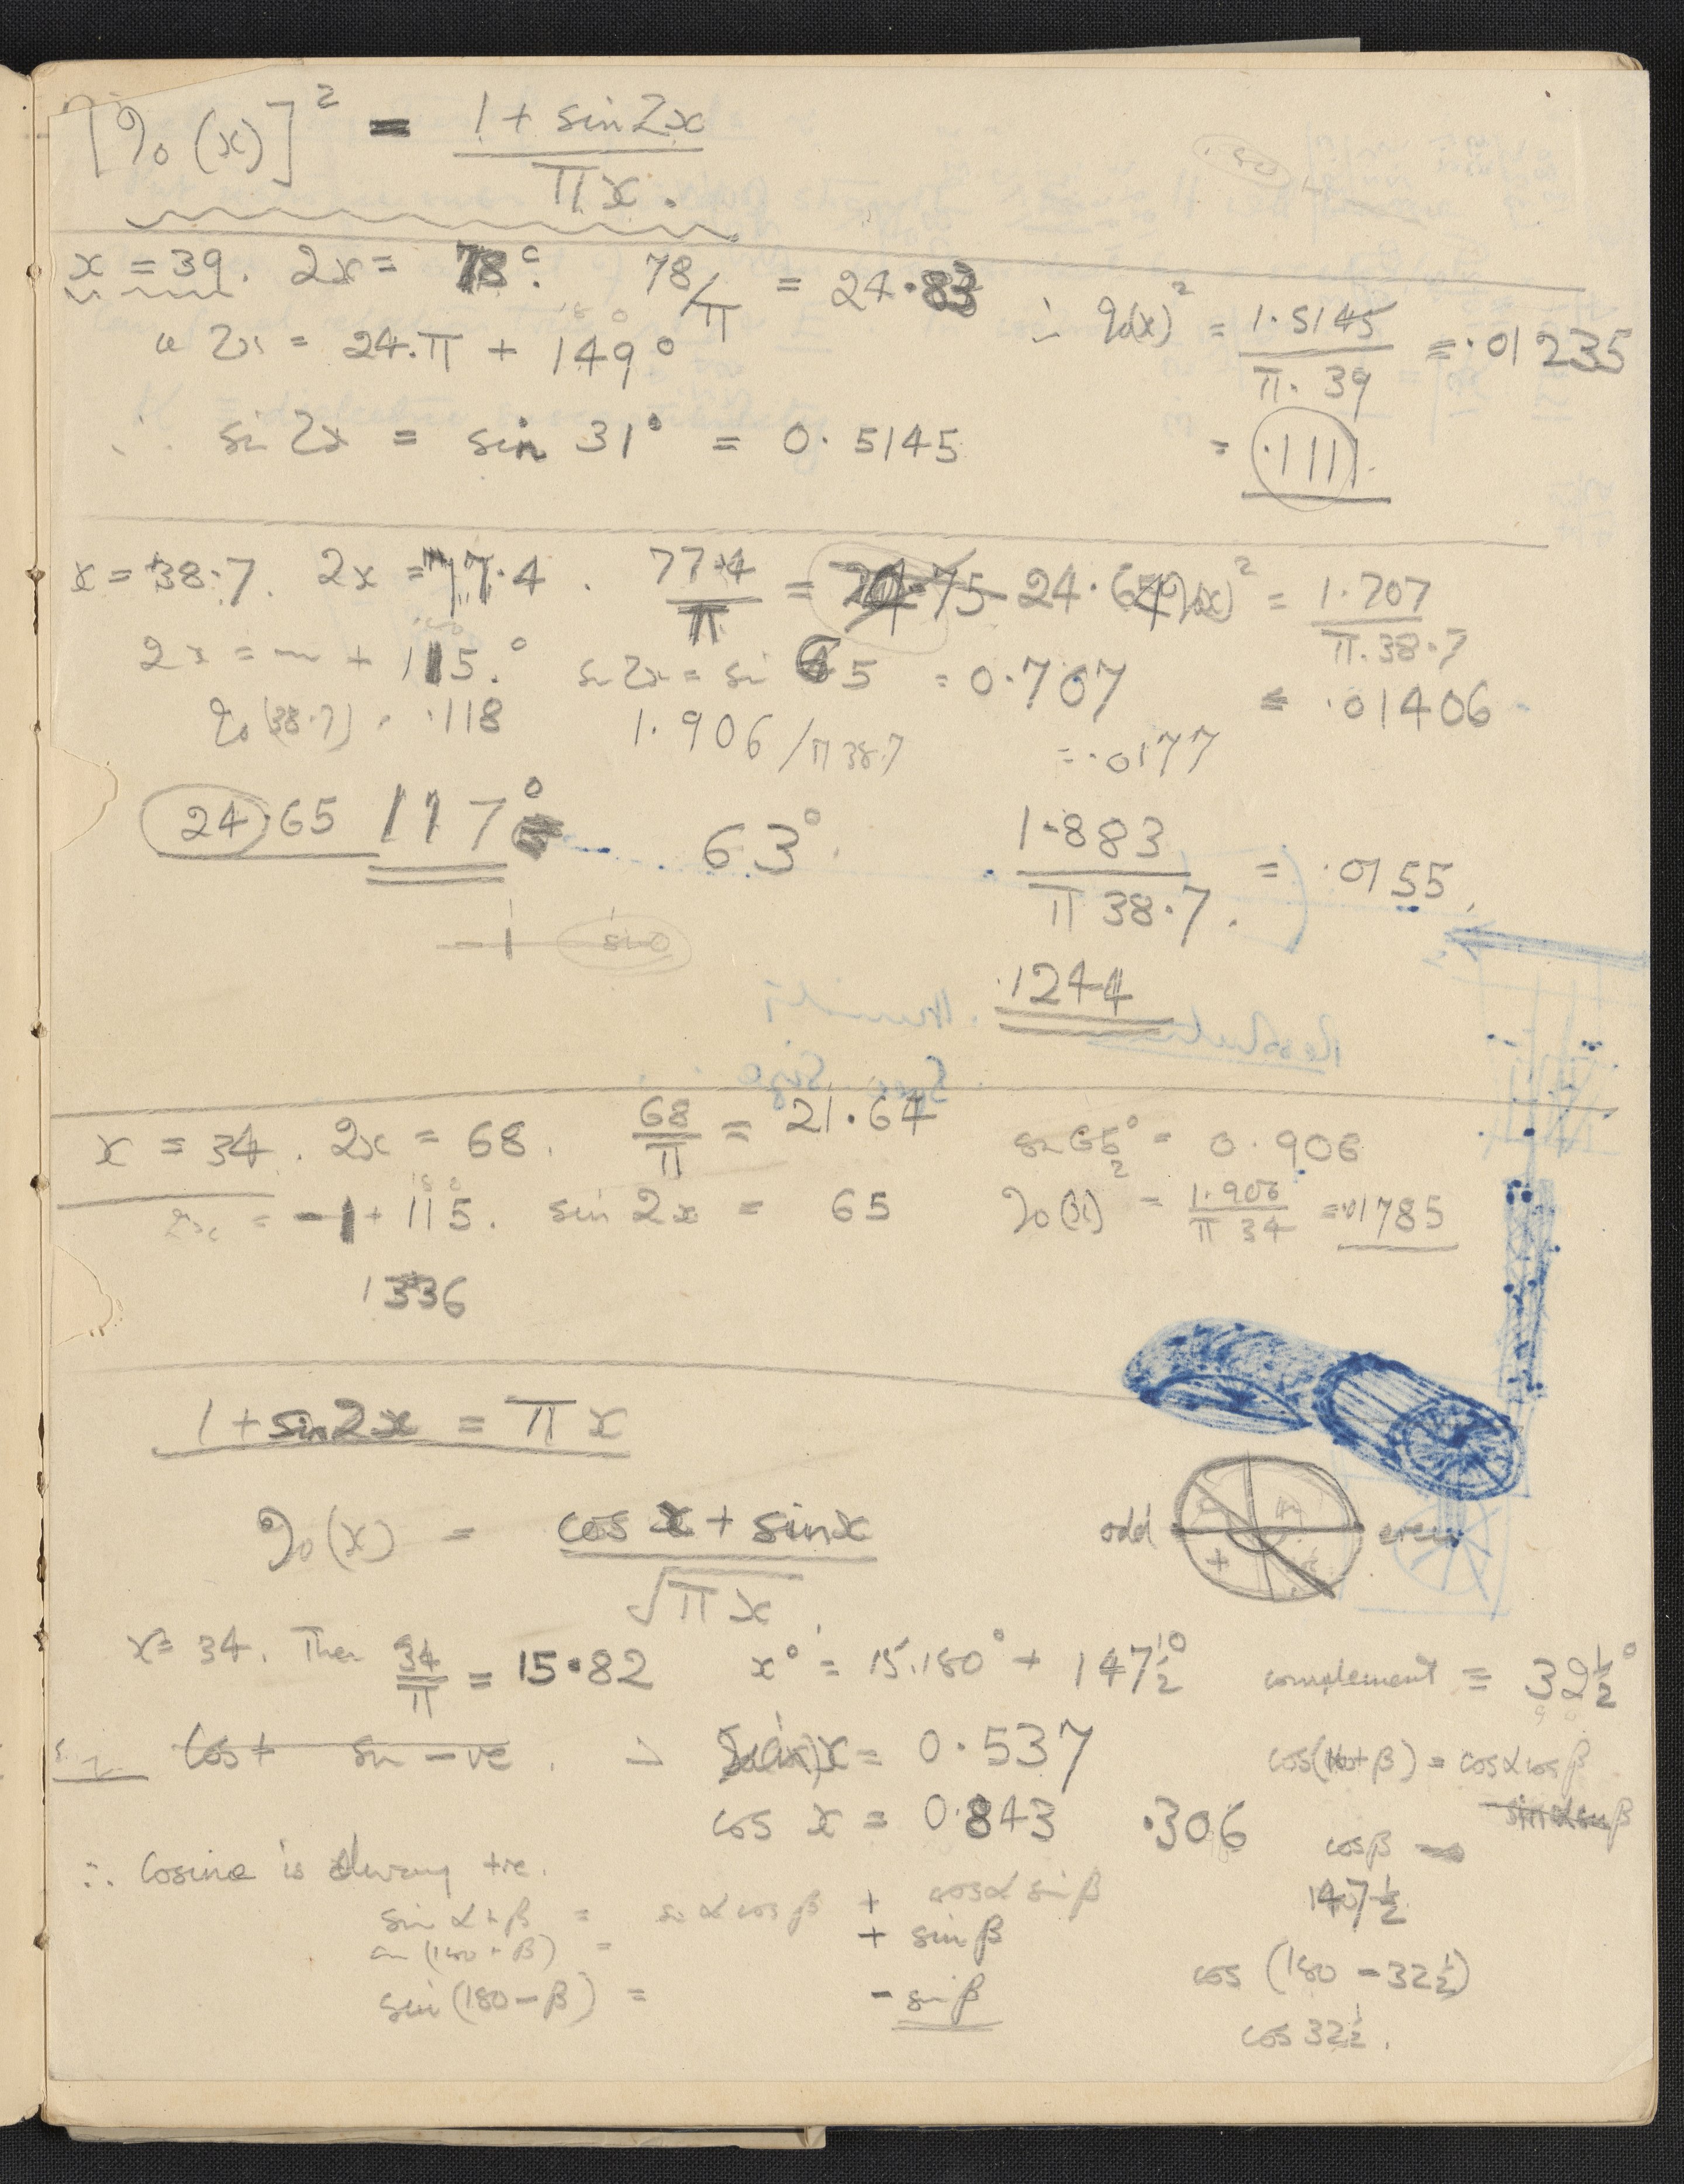 [J₀(x)]² = 1 + sin2x / πx.
x = 39. 2x = 78°. 78/π = 24.83
2x = 24.π + 149°
∴ J₀(x)² = 1.5145 / π. 39 = .01235
∴ sin 2x = sin 31° = 0.5145
= .111
x = 38.7. 2x = 77.4. 77.4/π = 24.75 24.64 J₀(x)² = 1.707 / π.38.7
2x = + 115.° sin 2x = sin 65 = 0.707 = .01406
J₀(38.7) = .118 1.906/π 38.7 = .0177
24.65 117° 63° 1.883 / π 38.7. = .0155.
-1
.1244
x = 34. 2x = 68. 68/π = 21.64 sin 65° = 0.906
2x = -1 + 115. sin 2x = 65 J₀(x)² = 1.906 / π 34 = .01785
1336
1 + sin2x = πx
J₀(x) = cos x + sinx / √πx
odd even
+
x = 34. Then 34/π = 15.82 x° = 15.180° + 147½° complement = 32½°
cos + sin -ve. sin x = 0.537 cos(180+β) = cosα cosβ
sinα sinβ
cos x = 0.843 .306 cosβ
∴ Cosine is always +ve. 147½
sin α+β = sin α cosβ + cosα sinβ
sin (180+β) = + sinβ
cos (180 - 32½)
sin (180-β) = - sinβ
cos 32½.